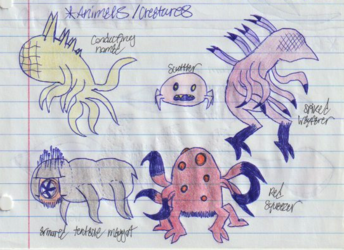 * Animals / Creatures
Conductary
name
Scutter
Spiked
Wayfarer
Armoured tentacle maggot
Red
Squeezer